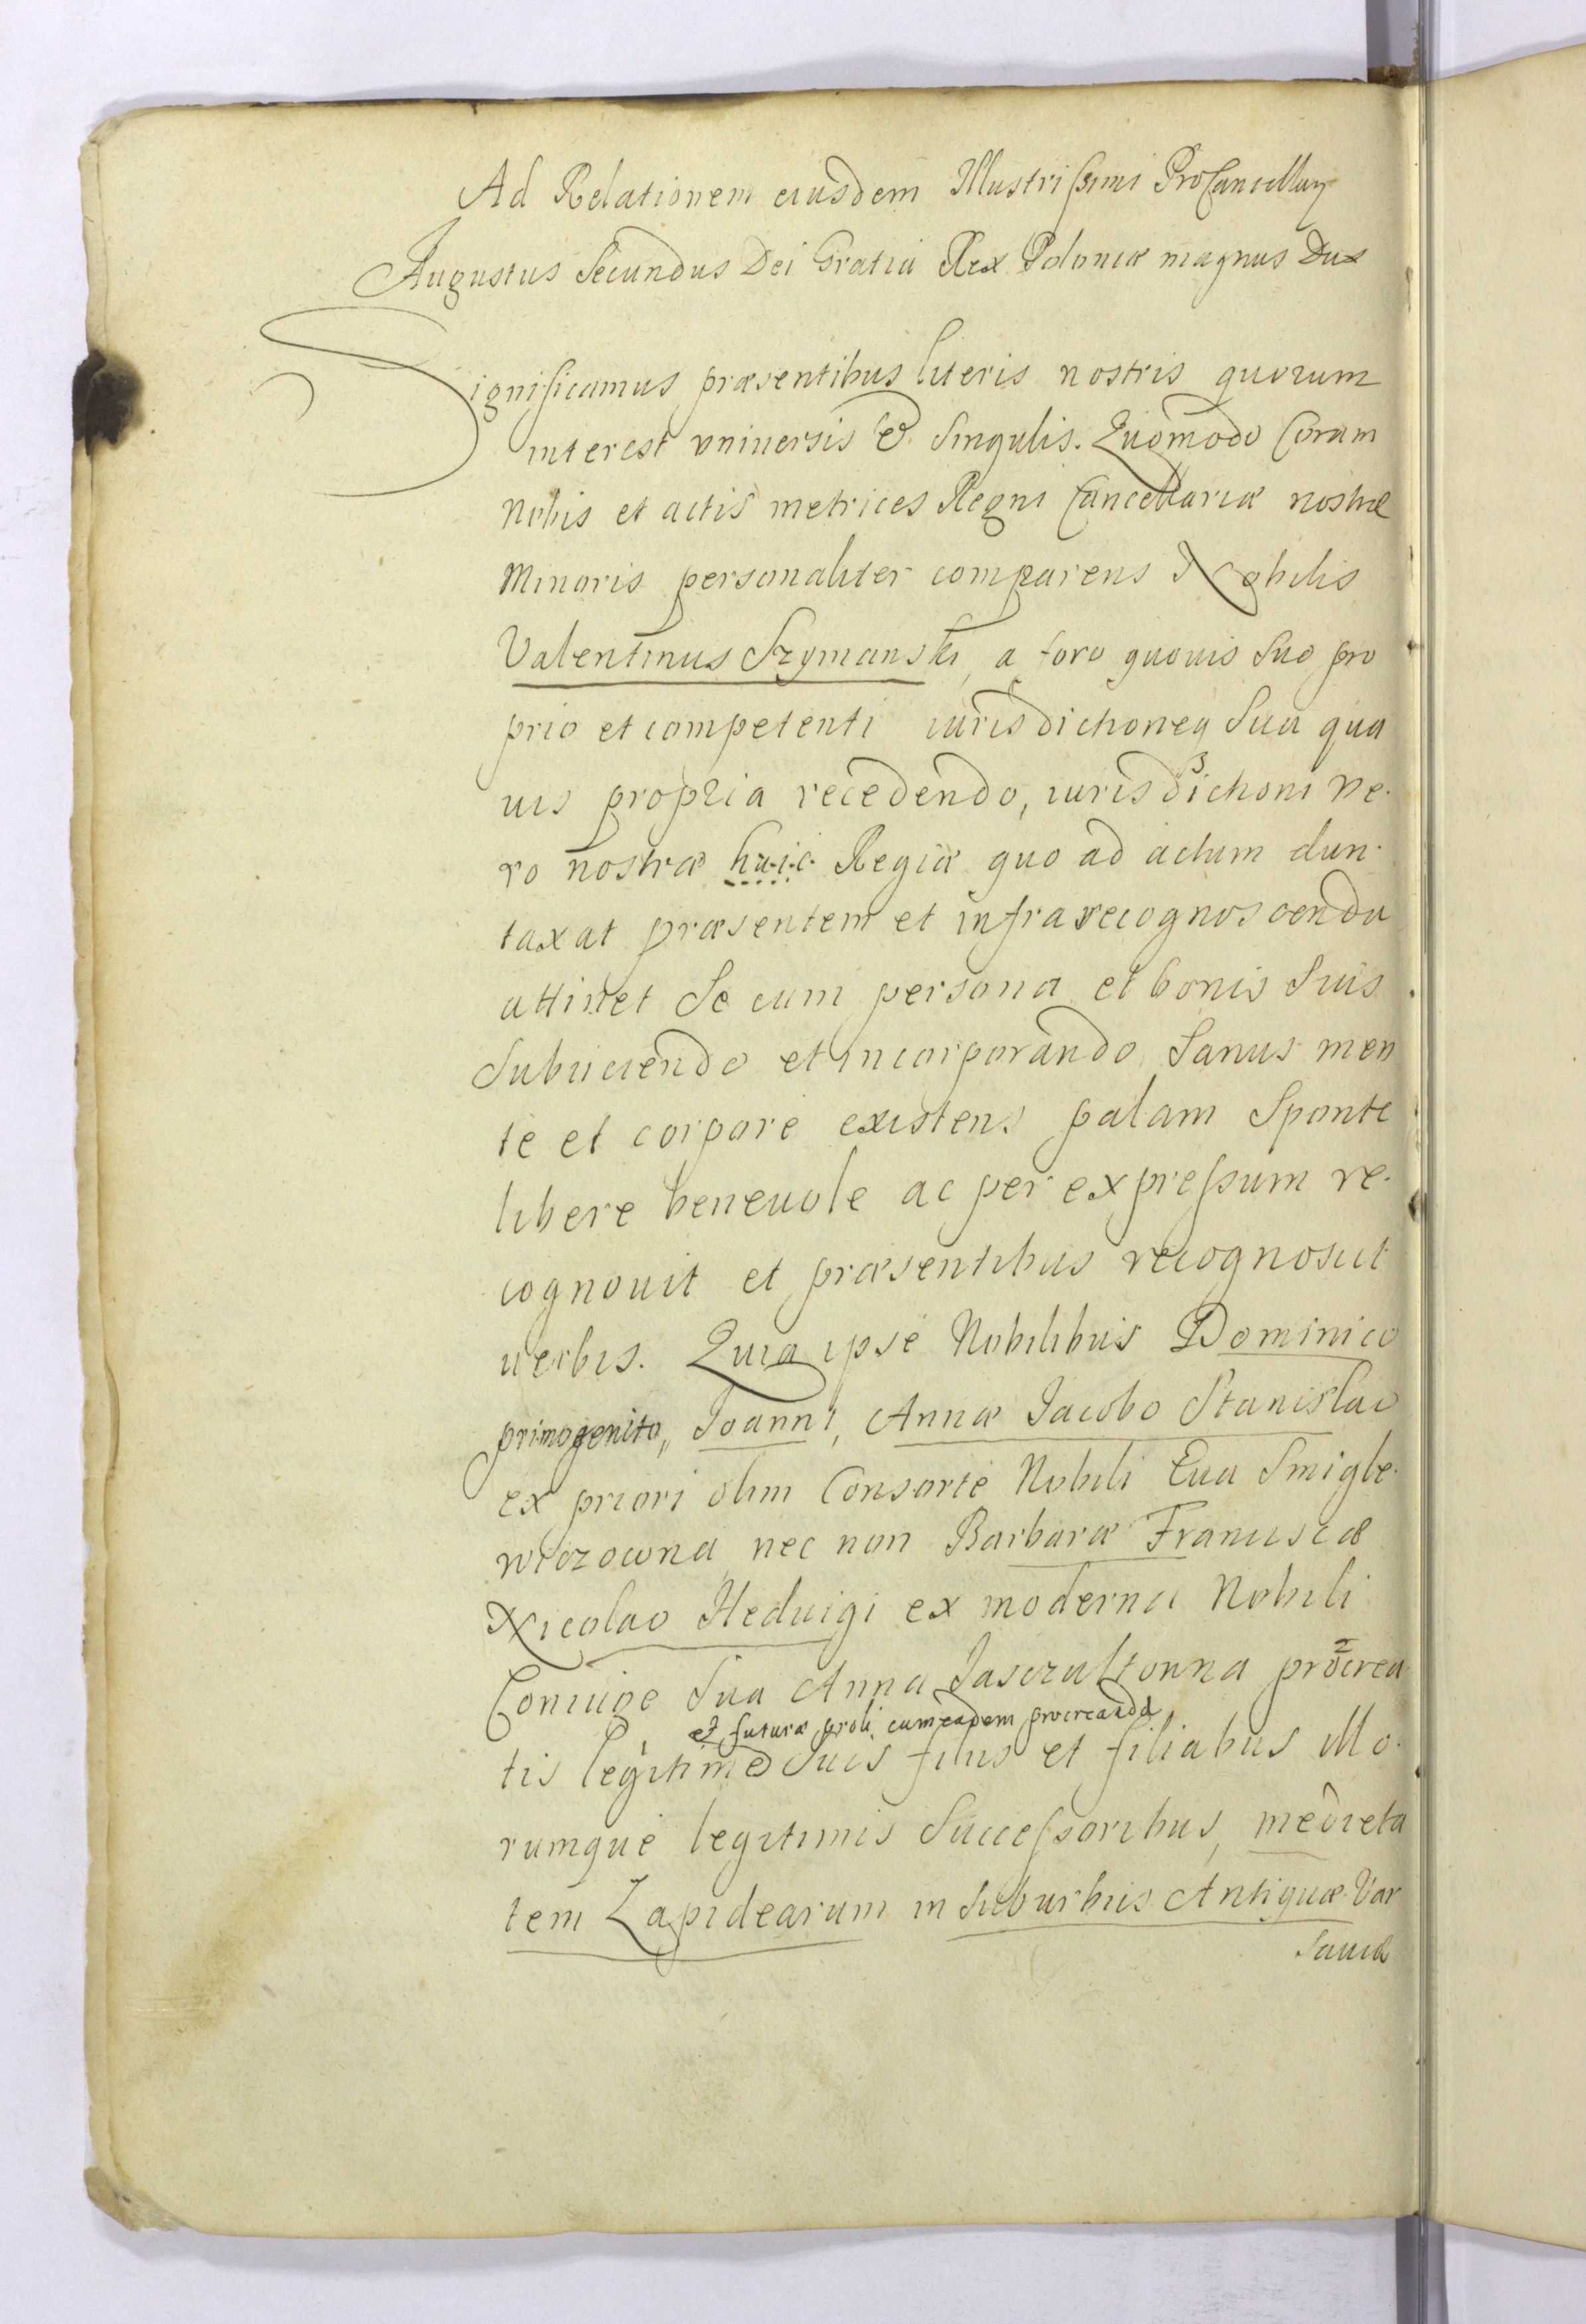 Ad Relationem eiusdem Illustrissimi ProCancellarÿ
Augustus Secundus Dei Gratia Rex Poloniæ magnus Dux
Significamus præsentibus literis nostris quorum
interest vniuersis & Singulis. Quomodo Coram
Nobis et actis metrices Regni Cancellariæ nostræ
Minoris personaliter comparens Nobilis
Valentinus Szymanski, a foro quouis Suo pro
prio et competenti iurisdictioneq Sua qua
uis propria recedendo, iurisdictioni ve-
ro nostræ huic Regiæ quo ad actum dun-
taxat præsentem et infrarecognoscenda
attinet Se cum persona et bonis Suis
Subiiciendo et incorporando, Sanus men
te et corpore existens palam Sponte
libere beneuole ac per expressum re-
cognouit et præsentibus recognoscit
uerbis. Quia ipse Nobilibus Dominico
primogenito, Joanni, Annæ Jacobo Stanislao
ex priori olim Consorte Nobili Eua Smigle-
wiczowna nec non Barbaræ Franciscæ
Nicolao Heduigi ex moderna Nobili
Coniuge Sua Anna Jasczultonna 2 procrea
et futuræ proli cum eadem procreandæ
tis legitime Suis filiis et filiabus Illo-
rumque legitimis Successoribus, medieta
tem Lapidearum in Suburbiis Antiquæ Var
Sauiæ